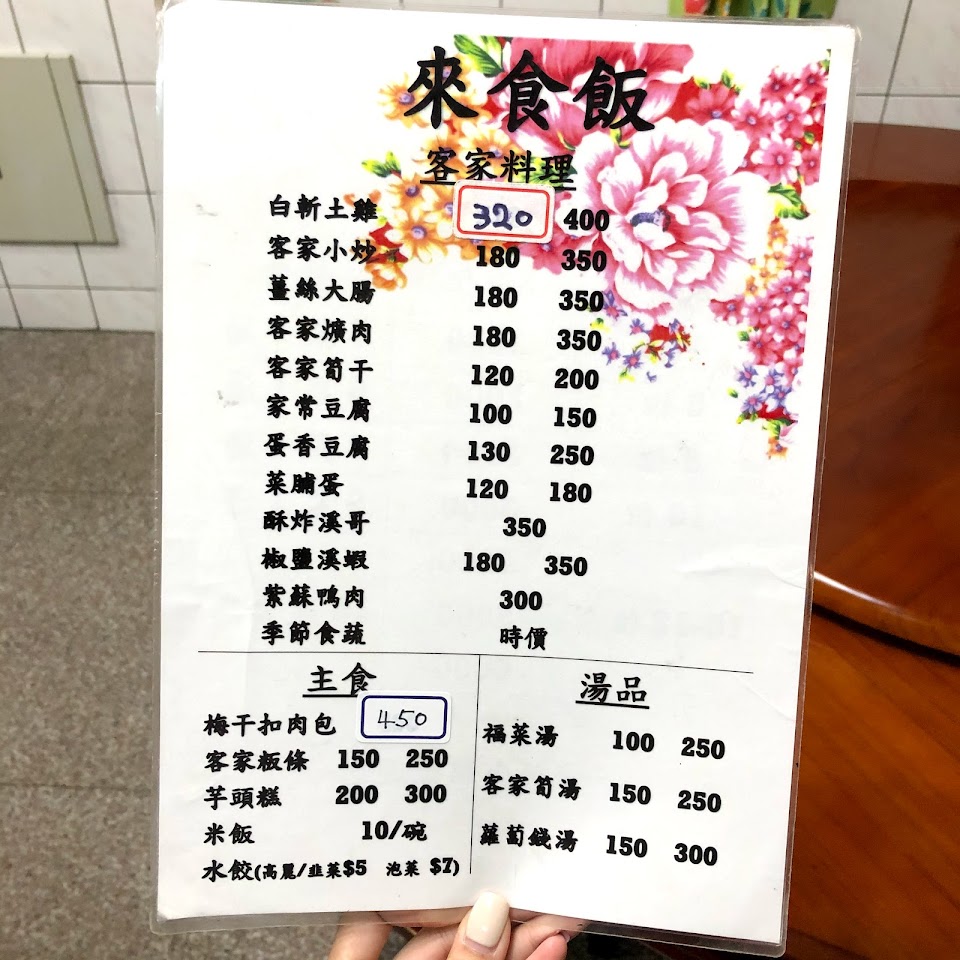 來食飯
客家料理
白斬土雞 320 400
客家小炒 180 350
薑絲大腸 180 350
客家爌肉 180 350
客家筍干 120 200
家常豆腐 100 150
蛋香豆腐 130 250
菜脯蛋 120 180
酥炸溪哥 350
椒鹽溪蝦 180 350
紫蘇鴨肉 300
季節食蔬 時價
主食
梅干扣肉包 450
客家粄條 150 250
芋頭糕 200 300
米飯 10/碗
水餃(高麗/韭菜$5 泡菜 $7)
湯品
福菜湯 100 250
客家筍湯 150 250
蘿蔔錢湯 150 300